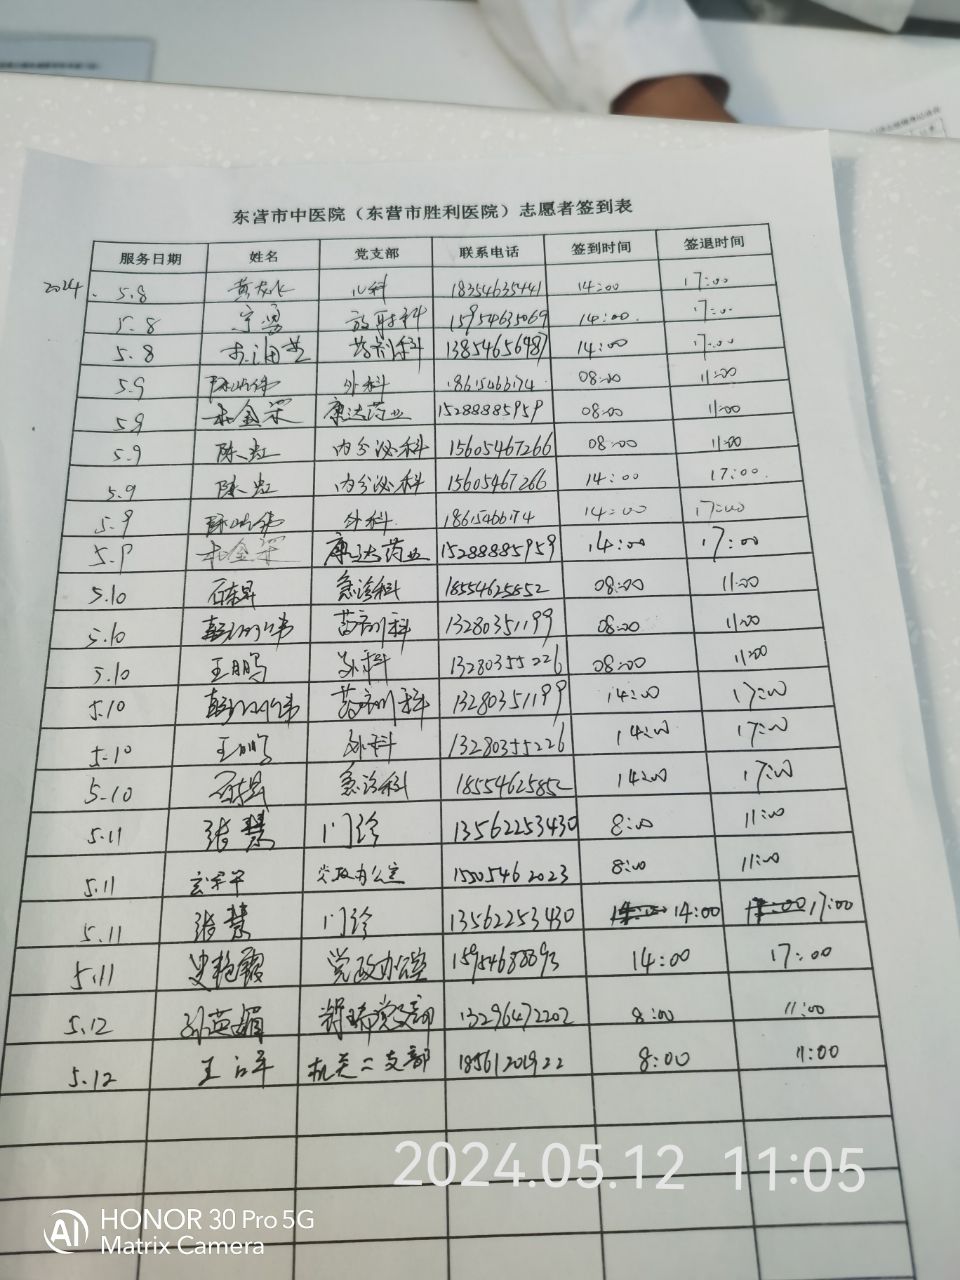 东营市中医院（东营市胜利医院）志愿者签到表
服务日期 姓名 党支部 联系电话 签到时间 签退时间
2024. 5.8 儿科 18354635441 14:00 17:00
5.8 宁勇 放射科 15954635069 14:00 17:00
5.8 药剂科 13854656487 14:00 17:00
5.9 外科 18615466174 08:00 11:00
5.9 康达药业 15288885959 08:00 11:00
5.9 陈虹 内分泌科 15605467266 08:00 11:00
5.9 陈虹 内分泌科 15605467266 14:00 17:00
5.9 外科 18615466174 14:00 17:00
5.9 康达药业 15288885959 14:00 17:00
5.10 急诊科 18554625852 08:00 11:00
5.10 13280351199 08:00 11:00
5.10 王鹏 外科 13280355226 08:00 11:00
5.10 13280351199 14:00 17:00
5.10 王鹏 外科 13280355226 14:00 17:00
5.10 急诊科 18554625852 14:00 17:00
5.11 张慧 门诊 13562253430 8:00 11:00
5.11 党政办公室 15505462023 8:00 11:00
5.11 张慧 门诊 13562253430 14:00 17:00
5.11 史艳霞 党政办公室 15954688893 14:00 17:00
5.12 孙英娟 13296472202 8:00 11:00
5.12 王 机关二支部 18561201922 8:00 11:00
2024.05.12 11:05
AI HONOR 30 Pro 5G
Matrix Camera